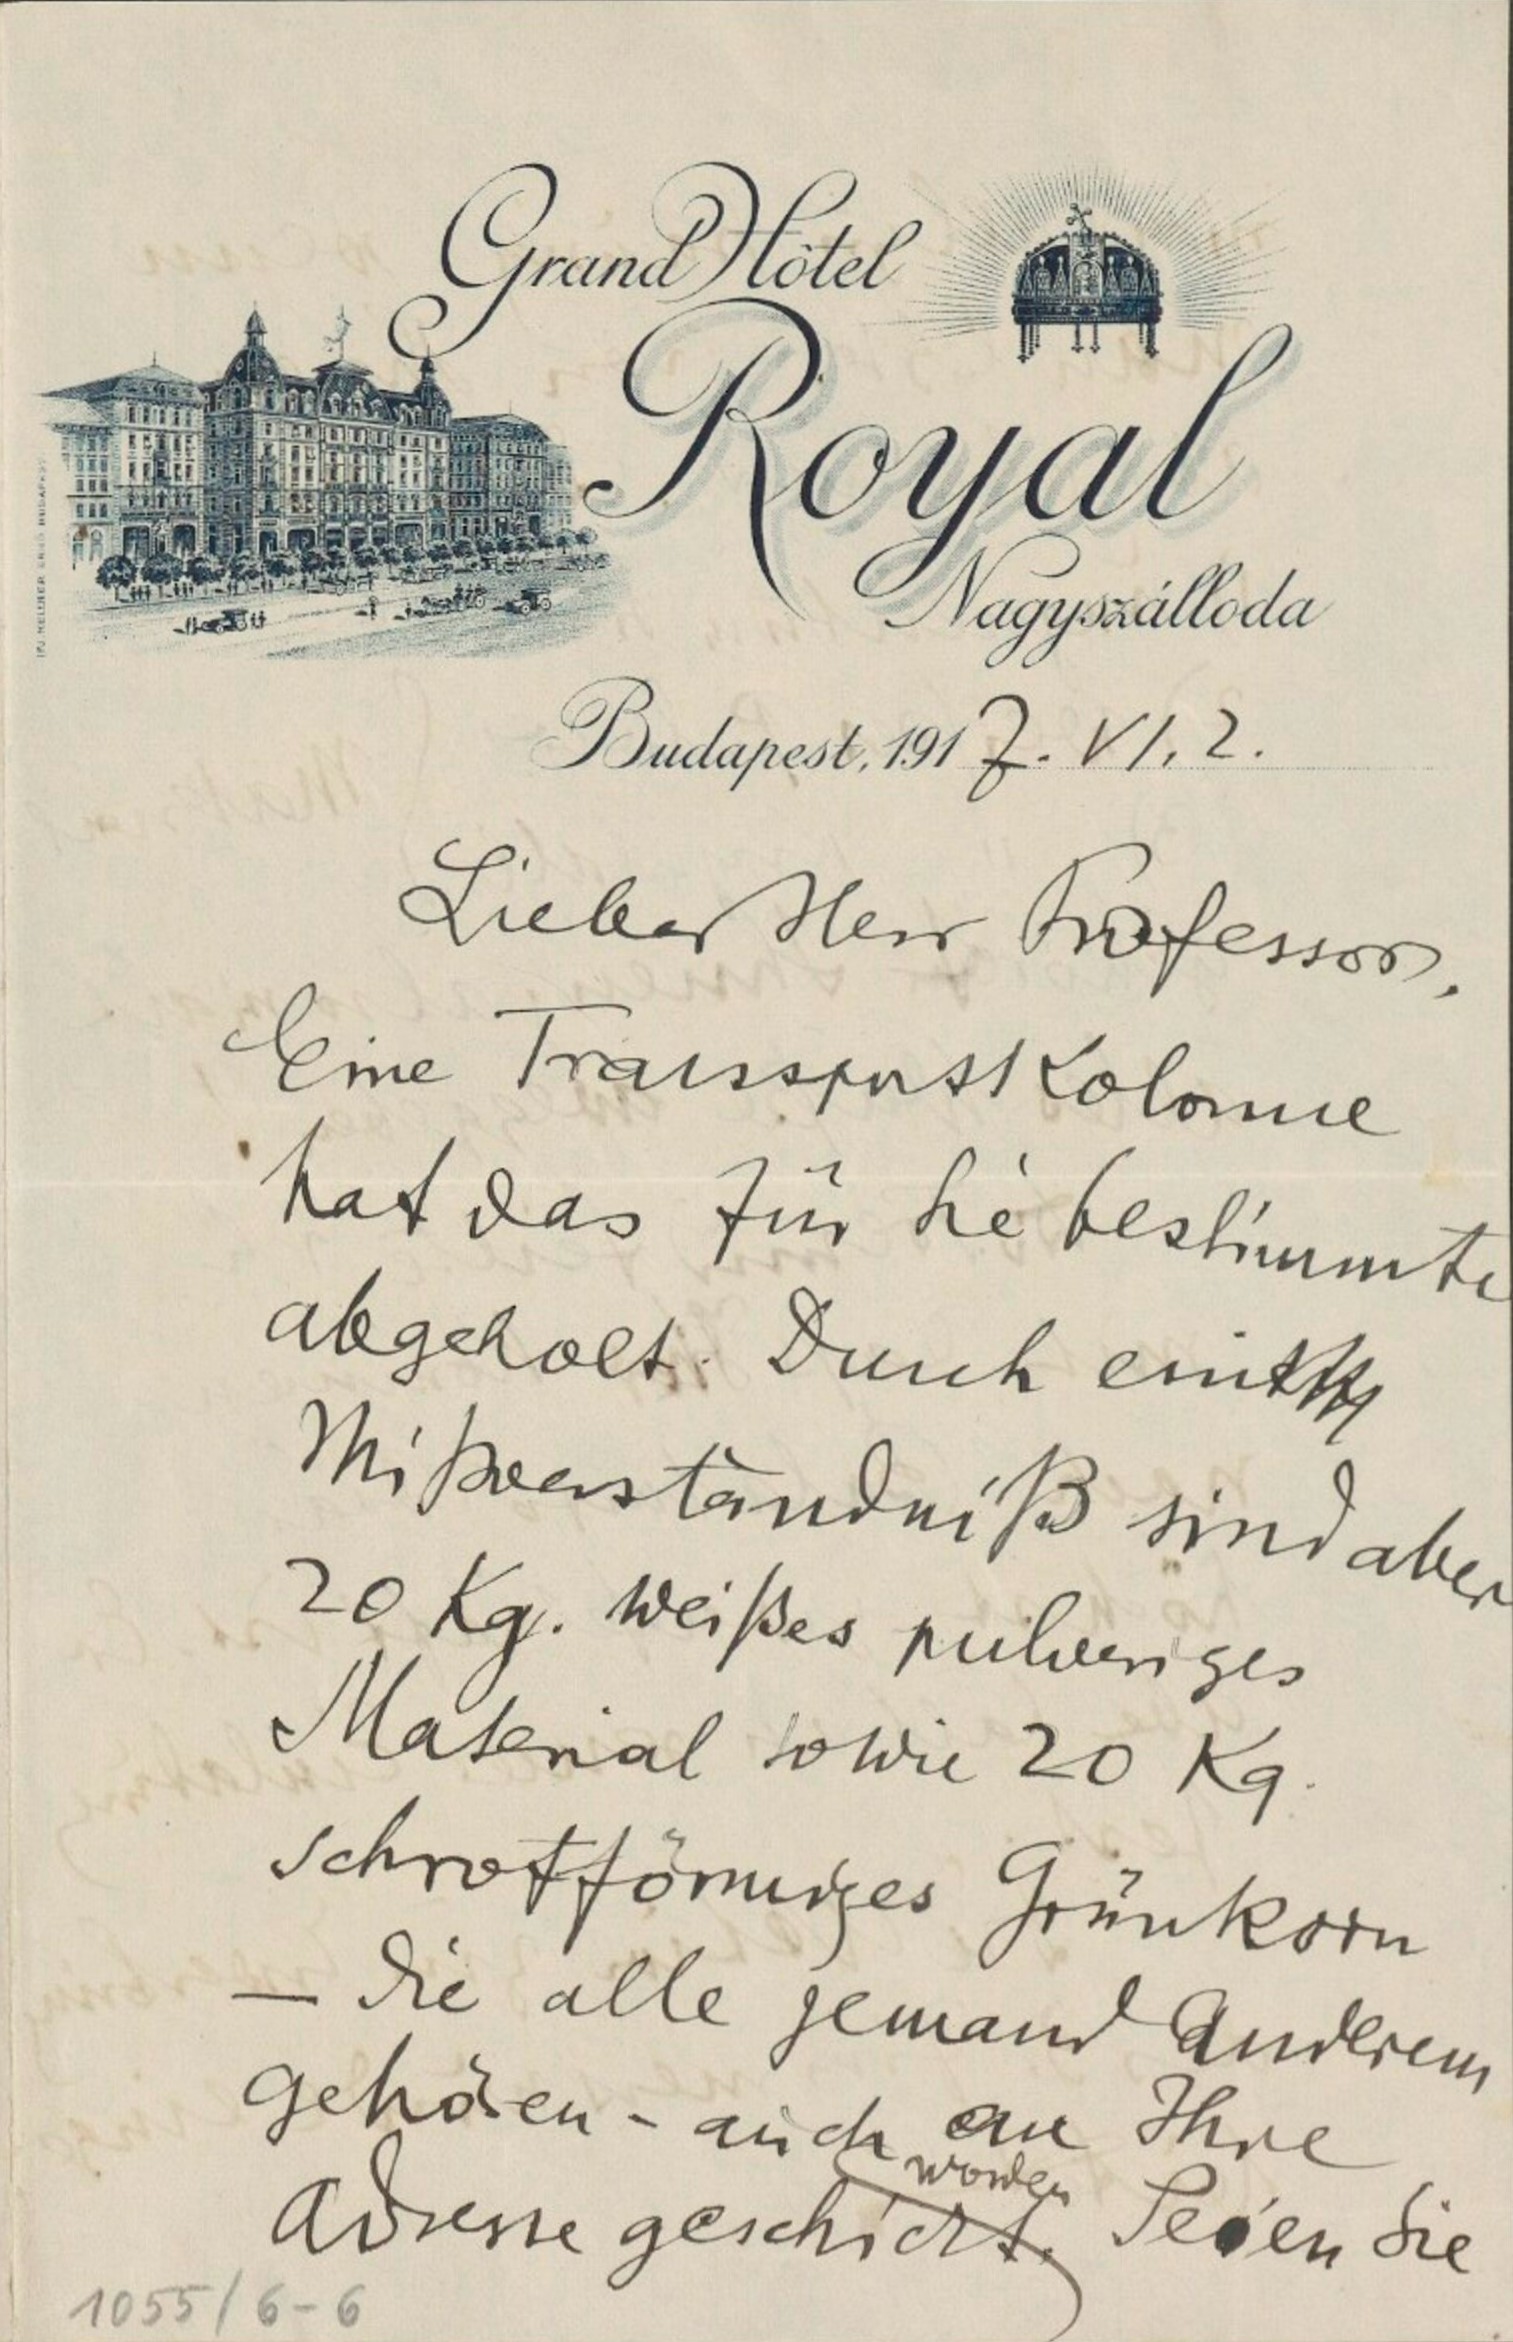 Grand Hôtel
Royal
Nagyszálloda
Budapest, 1917. VI. 2.
Lieber Herr Professor,
Eine Transportkolonne
hat das für Sie bestimmte
abgeholt. Durch ein
Mißverständniß sind aber
20 Kg. weißes pulveriges
Material sowie 20 Kg.
schrotförmiges Grünkorn
— die alle jemand Anderem
gehören - auch an Ihre
worden
Adresse geschickt. Seien Sie
1055/6-6